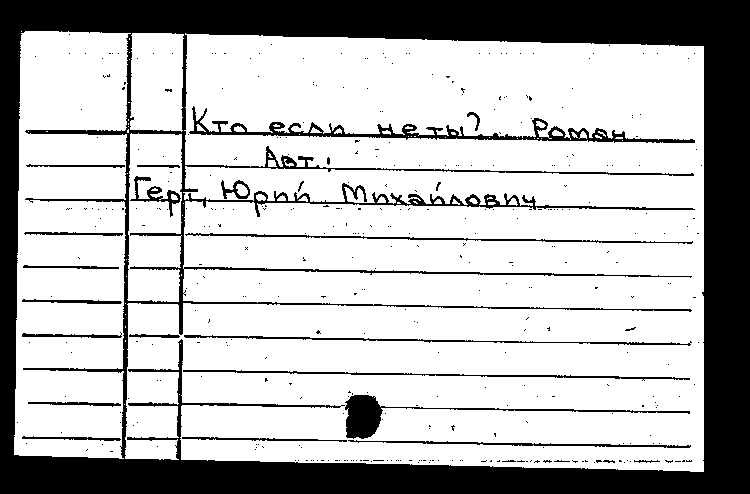 Кто если не ты?... Роман
Авт.:
Герт, Юрий Михайлович